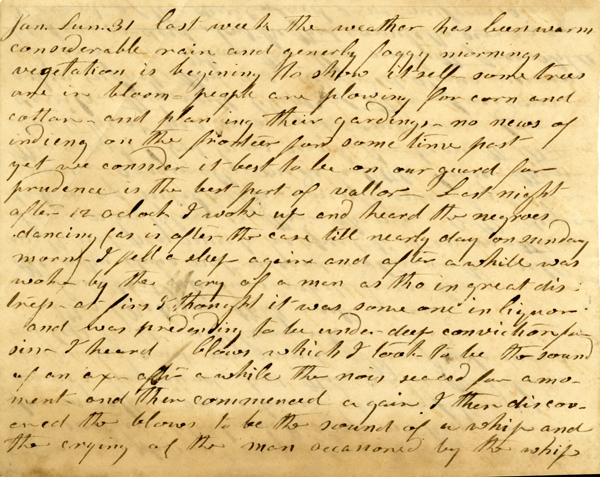 Jan. Sun. 31 last week the weather has been warm
considerable rain and generly foggy mornings
vegetation is begining to show itself some trees
are in bloom - people are plowing for corn and
cotton - and planting their gardings - no news of
indieng on the fronteer for some time past
yet we consider it best to be on our guard for
prudence is the best part of vallor - Last night
after 12 oclock I woke up and heard the negroes
dancing (as is often the case till nearly day on sunday
morng I fell a sleep again and after a while was
woke by the cry of a man as tho in great dis-
tress - at first I thought it was some one in liquor
and was predending to be under deep conviction for
sin - I heard blows which I took to be the sound
of an ax - after a while the nois seaced for a mo-
ment - and then commenced again I then discov-
ered the blows to be the sound of a whip and
the crying of the man occasioned by the whip